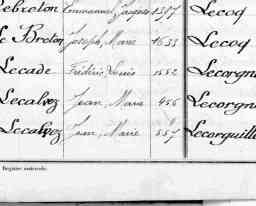 Lebreton Emmanuel Jacques 1597 Lecoq
Le Breton Joseph, Marie 1633 Lecoq
Lecade Frédéric Louis 1582
Lecalvez Jean, Marie 456
Lecalvez Jean, Marie 557 Lecorguillé
Registre matricule.